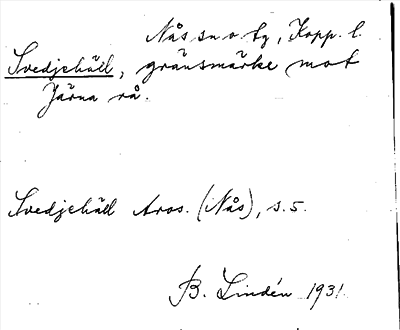 Nås sn o tg, Kopp. l.
Svedjehäll, gränsmärke mot
Järna rå.
Svedjehäll Aros. (Nås), s. 5.
B. Lindén 1931.